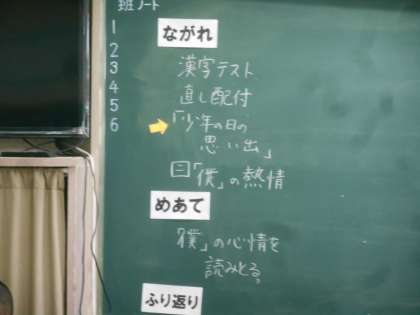 班ノート
1
2
3
4
5
6
ながれ
漢字テスト
直し配付
「少年の日の
思い出」
二「僕」の熱情
めあて
「僕」の心情を
読みとる。
ふり返り